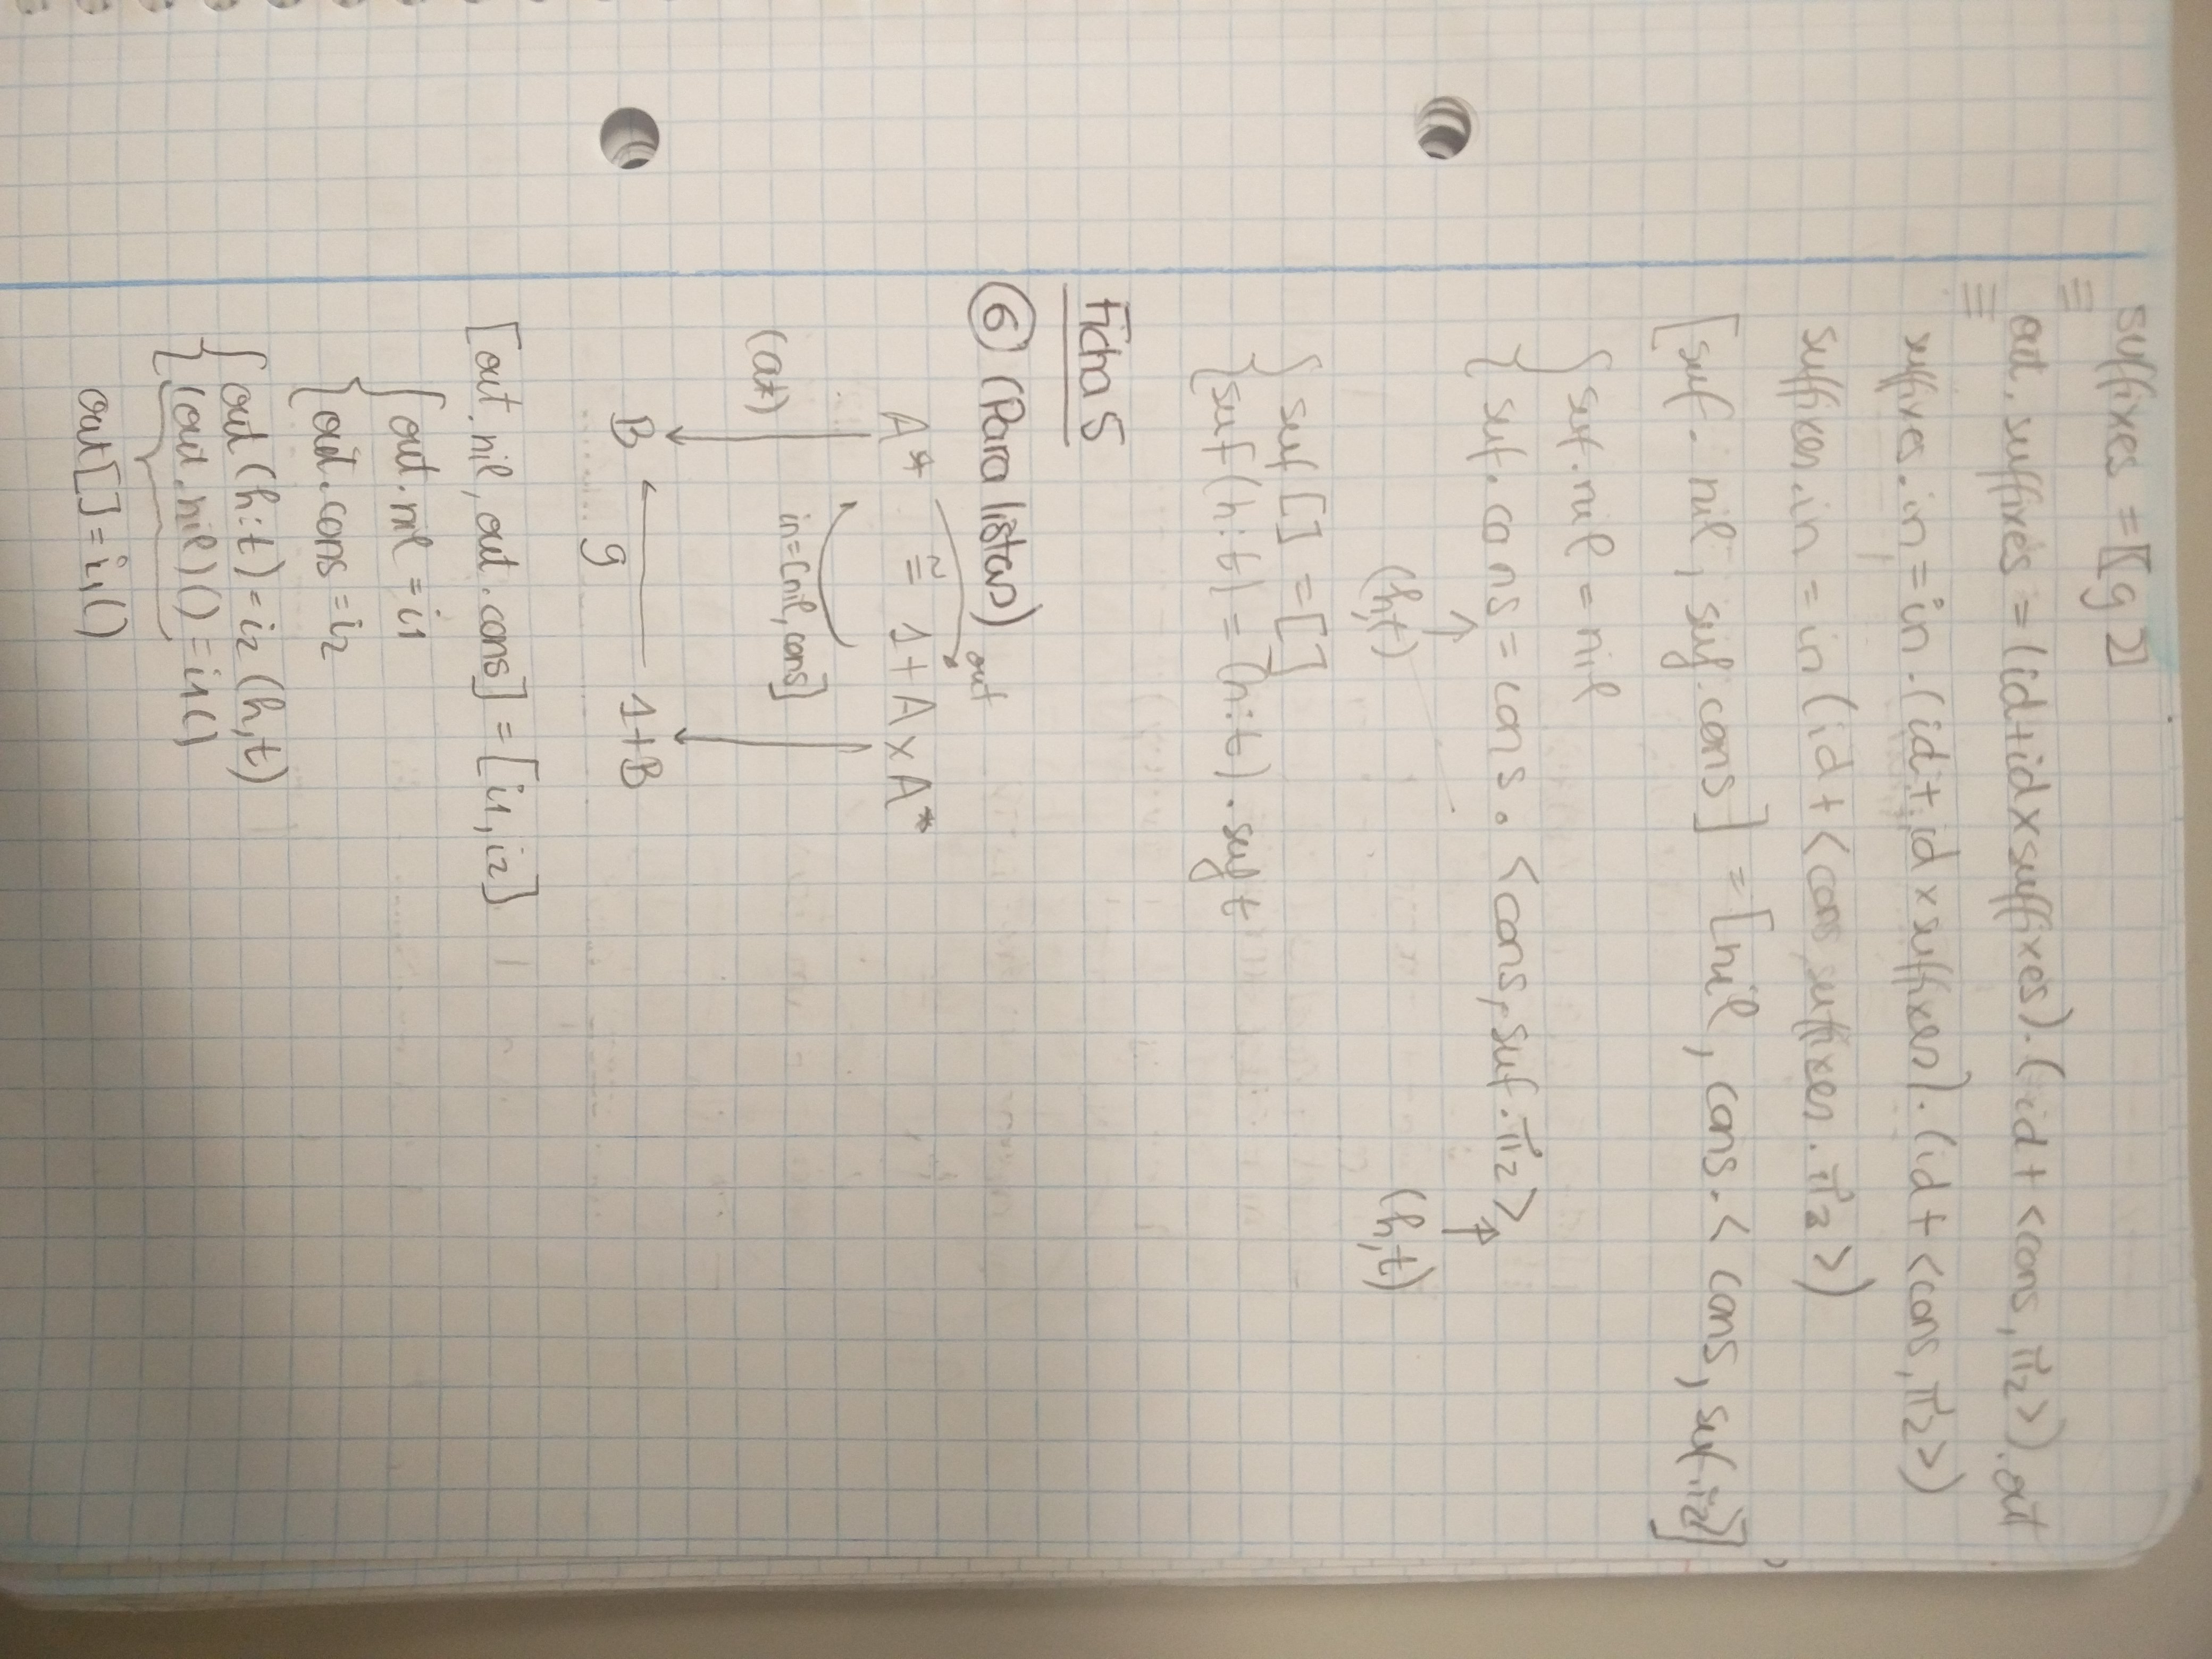 suffixes = [(g)]
≡
out. suffixes = (id+id×suffixes).(id + <cons, π2>).out
≡
suffixes.in = in.(id + id × suffixes).(id + <cons, π2>)
suffixes.in = in (id + <cons, suffixes. π2>)
[suf. nil, suf.cons] = [nil, cons.< cons, suf.π2>]
suf.nil = nil
suf. cons = cons. <cons, suf.π2>
↑ ↑
(h,t) (h,t)
suf [] = []
suf(h:t) = (h:t). suf t
Ficha 5
⑥ (Para listas)
out
A* ≅ 1+A×A*
in=[nil, cons]
(a*)
B ← 1+B
g
[out.nil, out.cons] = [i1, i2]
out.nil = i1
out.cons = i2
out (h:t) = i2 (h,t)
(out.nil)() = i1()
out[] = i1()